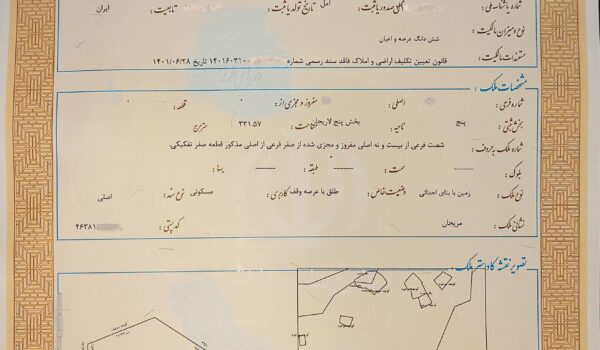 شماره یا شناسه ملی : محل صدور یا ثبت : آمل تاریخ تولد یا ثبت : تابعیت : ایران
نوع و میزان مالکیت : شش دانگ عرصه و اعیان
مستندات مالکیت : قانون تعیین تکلیف اراضی و املاک فاقد سند رسمی شماره ۱۴۰۱۶۰۳۱۰۰ تاریخ ۱۴۰۱/۰۶/۲۸
مشخصات ملک :
شماره فرعی : اصلی : مفروز و مجزی از : قطعه :
بخش ثبتی : پنج ناحیه : بخش پنج لاریجان مساحت : ۳۳۱.۵۷ متر مربع
شماره ملک به حروف : شصت فرعی از بیست و نه اصلی مفروز و مجزی شده از صفر فرعی از اصلی مذکور قطعه صفر تفکیکی.
بلوک : سمت : طبقه : بها :
نوع ملک : زمین با بنای احداثی وضعیت خاص : طلق با عرصه وقف کاربری : مسکونی نوع سند : اصلی
نشانی ملک : مریجان کد پستی : ۴۶۳۸۱
تصویر نقشه کاداستر ملک :